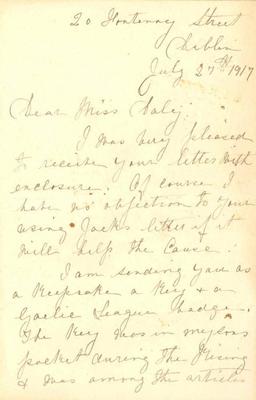 20 Fontenoy Street
Dublin
July 27th 1917
Dear Miss Daly:
I was very pleased
to receive your letter with
enclosure. Of course I
have no objection to your
using Jack's letter if it
will help the Cause.
I am sending you as
a keepsake a key & a
Gaelic League badge.
The key was in my son's
pocket during the Rising
& was among the articles